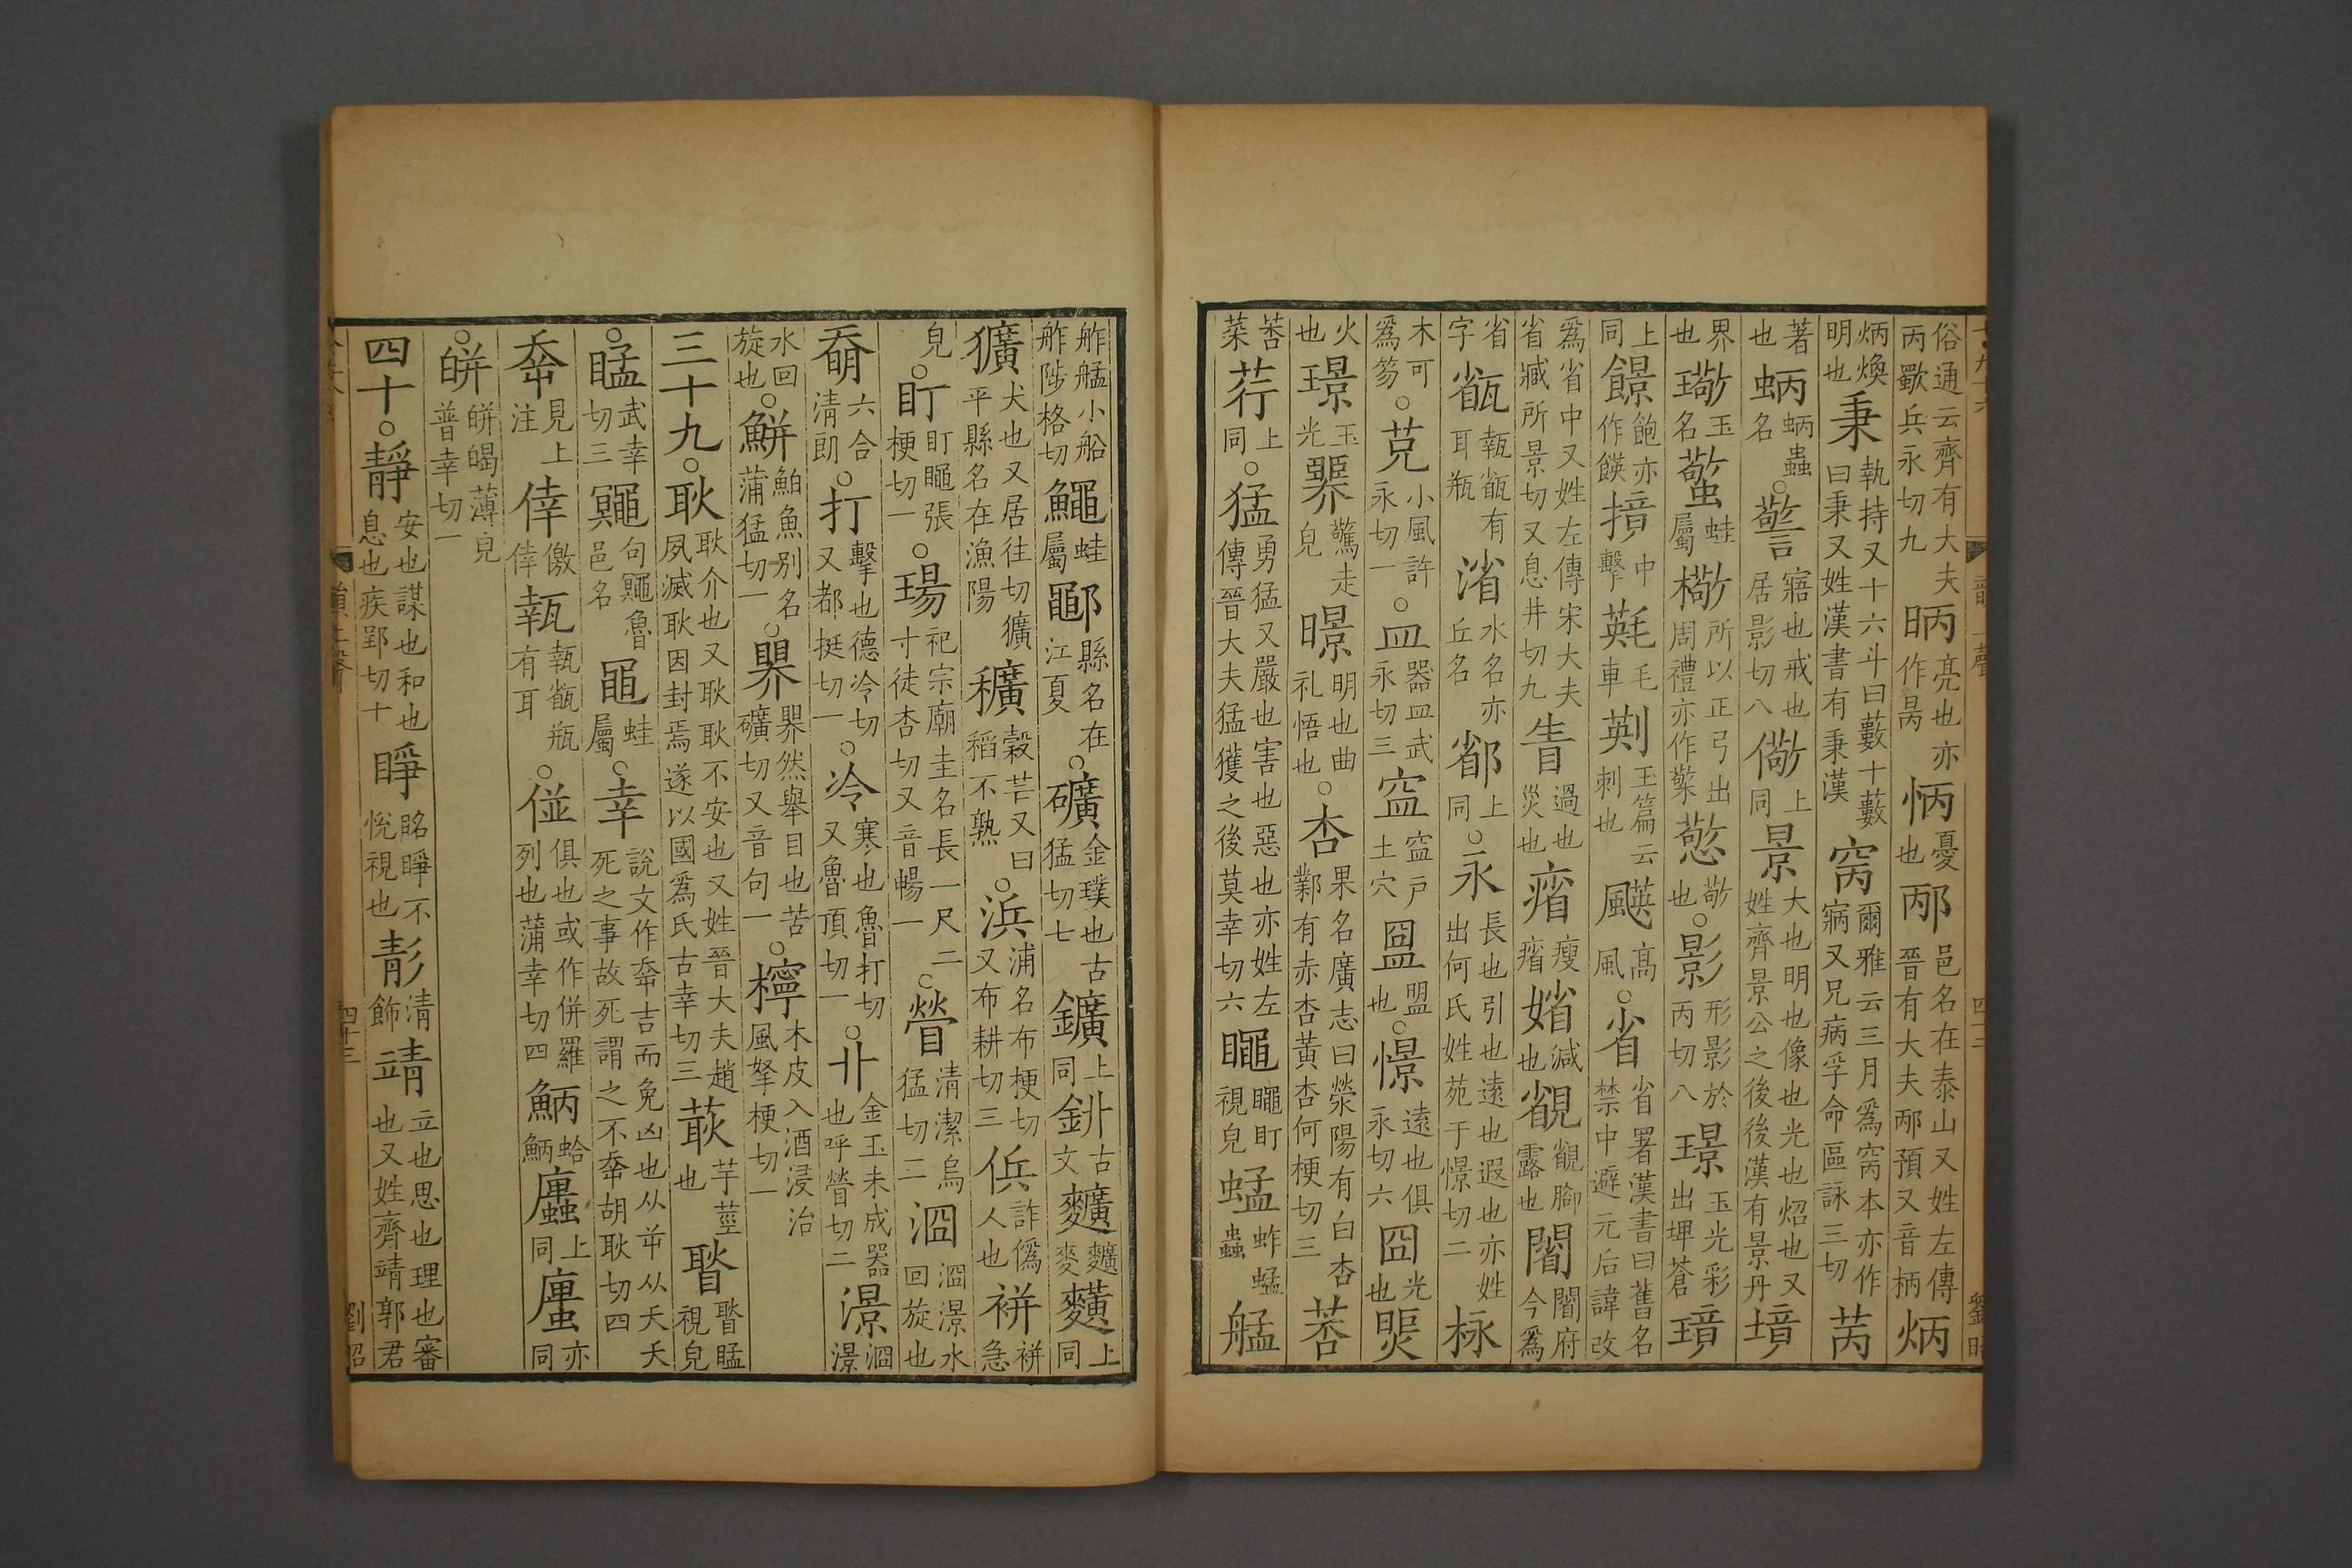 俗通云齊有大夫丙歜兵永切九昞亮也亦作昺怲憂也邴邑名在泰山又姓左傳晉有大夫邴預又音柄炳
炳煥明也秉執持又十六斗曰藪十藪曰秉又姓漢書有秉漢窉爾雅云三月為窉本亦作寎又況病孚命區詠三切苪
著也蛃蛃蟲名○警寤也戒也居影切八儆上同景大也明也像也光也炤也又姓齊景公之後後漢有景丹境
界也璥玉名蟼蛙屬檠所以正弓出周禮亦作㯳憼敬也○影形影於丙切八璟玉光彩出埤蒼璄
上同䭘飽亦作䭊撔中擊㲟毛車㓨玉篇云刺也䬬高風○省省署漢書曰舊名禁中避元后諱改
為省中又姓左傳宋大夫省臧所景切又息井切九眚過也災也㾪瘦㾪媘減也䚇䚇䚎露也闇闇府今為
省字㼳㽀㼳有耳瓶渻水名亦丘名䣝上同○永長也引也遠也遐也亦姓出何氏姓苑于憬切二栐
木可為笏○克小風許永切一○皿器皿武永切三𥁕𥁕戶土穴盟盟也○憬遠也俱永切六囧光也煚
火也璟玉光臩驚走皃暻明也曲礼悟也○杏果名廣志曰滎陽有白杏鄴有赤杏黃杏何梗切三莕
莕菜荇上同○猛勇猛又嚴也害也惡也亦姓左傳晉大夫猛獲之後莫幸切六䁅䁅盯視皃蜢蚱蜢蟲艋
舴艋小船舴陟格切鼆蛙屬鄳縣名在江夏○礦金璞也古猛切七鑛上同𨥥古文䵃䵃麥𪎵上同
獷犬也又居往切獷平縣名在漁陽穬穀芒又曰稻不熟○浜浦名布梗切又布耕切三㑟詐偽人也𧚭𧚭急
皃○盯盯䁅張梗切一○瑒祀宗廟圭名長一尺二寸徒杏切又音暢一○䁝清潔烏猛切二㴄㴄澋水回旋也
奣六合清朗○打擊也德冷切又都挺切一○冷寒也魯打切又魯頂切一○卝金玉未成器也呼䁝切二澋㴄澋
水回旋也○鮩鮊魚別名蒲猛切一○界界然舉目也苦礦切又音句一○檸木皮入酒浸治風拏梗切一
三十九○耿耿介也又耿耿不安也又姓晉大夫趙夙滅耿因封焉遂以國為氏古幸切三䔵芋莖也䁵䁵瞄視皃
○瞄武幸切三鼆句鼆魯邑名黽蛙屬○幸說文作㚔吉而免凶也从屰从夭夭死之事故死謂之不㚔胡耿切四
㚔見上注倖儌倖㼬㼬㼳瓶有耳○偋俱也或作併羅列也蒲幸切四鮩蛤鮩䗒上同蠯亦同
○皏皏皛薄皃普幸切一
四十○靜安也謀也和也息也疾郢切十睜䀴睜不悅視也彰清飾靖立也思也理也審也又姓齊靖郭君